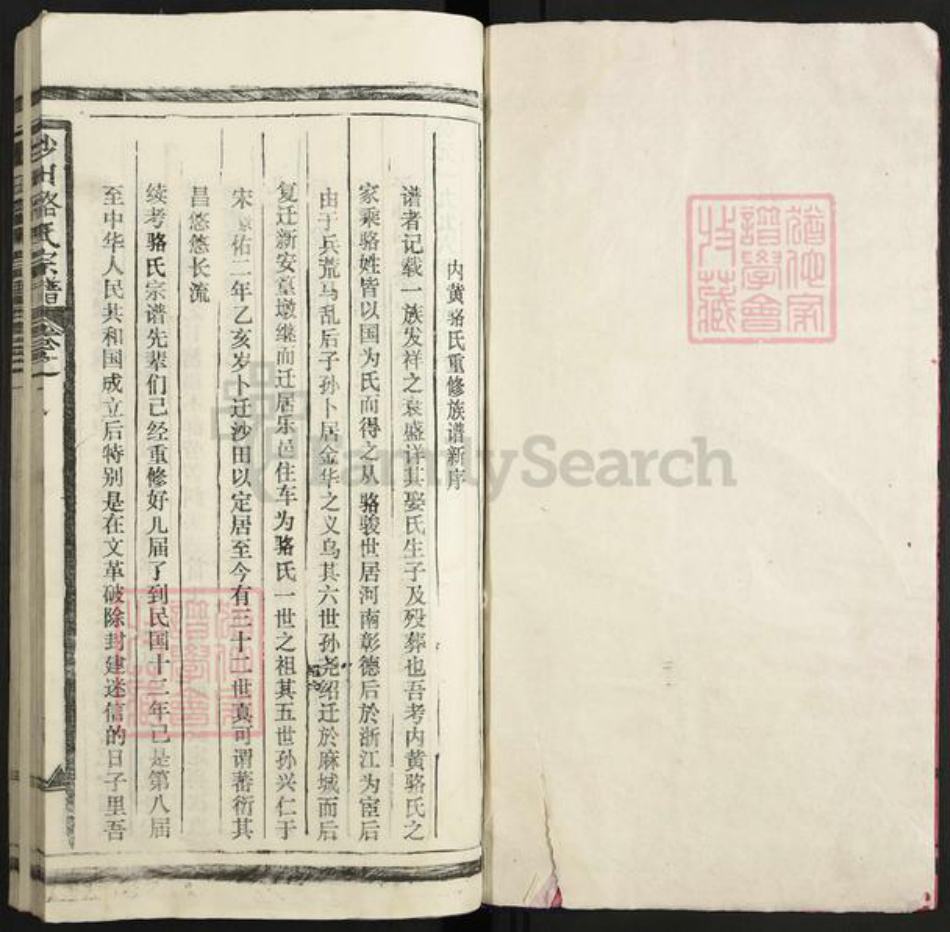 内黄骆氏重修族谱新序
谱者记载一族发祥之衰盛详其娶氏生子及殁葬也吾考内黄骆氏之
家乘骆姓皆以国为氏而得之从骆骏世居河南彰德后於浙江为宦后
由于兵荒马乱后子孙卜居金华之义乌其六世孙尧绍迁於麻城而后
复迁新安皇墩继而迁居乐邑住车为骆氏一世之祖其五世孙兴仁于
宋 佑二年乙亥岁卜迁沙田以定居至今有三十二世真可谓蕃衍其
昌悠悠长流
续考骆氏宗谱先辈们已经重修好几届了到民国十三年己是第八届
至中华人民共和国成立后特别是在文革破除封建迷信的日子里吾
骆氏宗谱
譜學會
收藏
FamilySearch